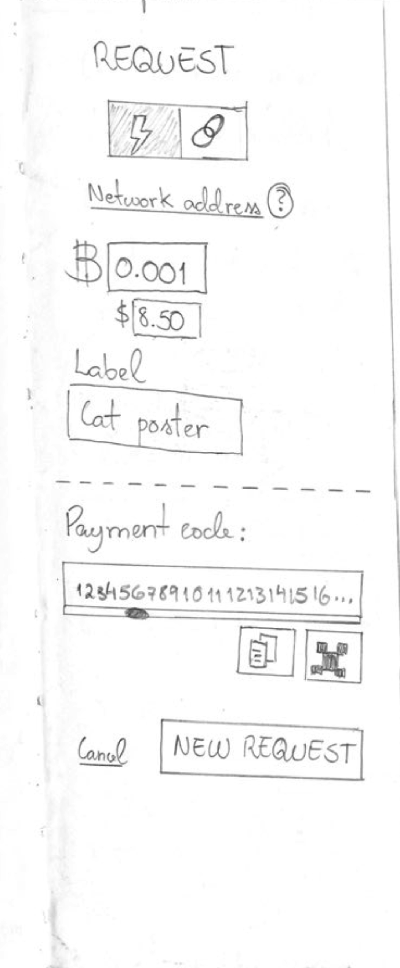 REQUEST
Network address ?
₿ 0.001
$ 8.50
Label
Cat poster
Payment code:
12345678910111213141516...
Cancel NEW REQUEST